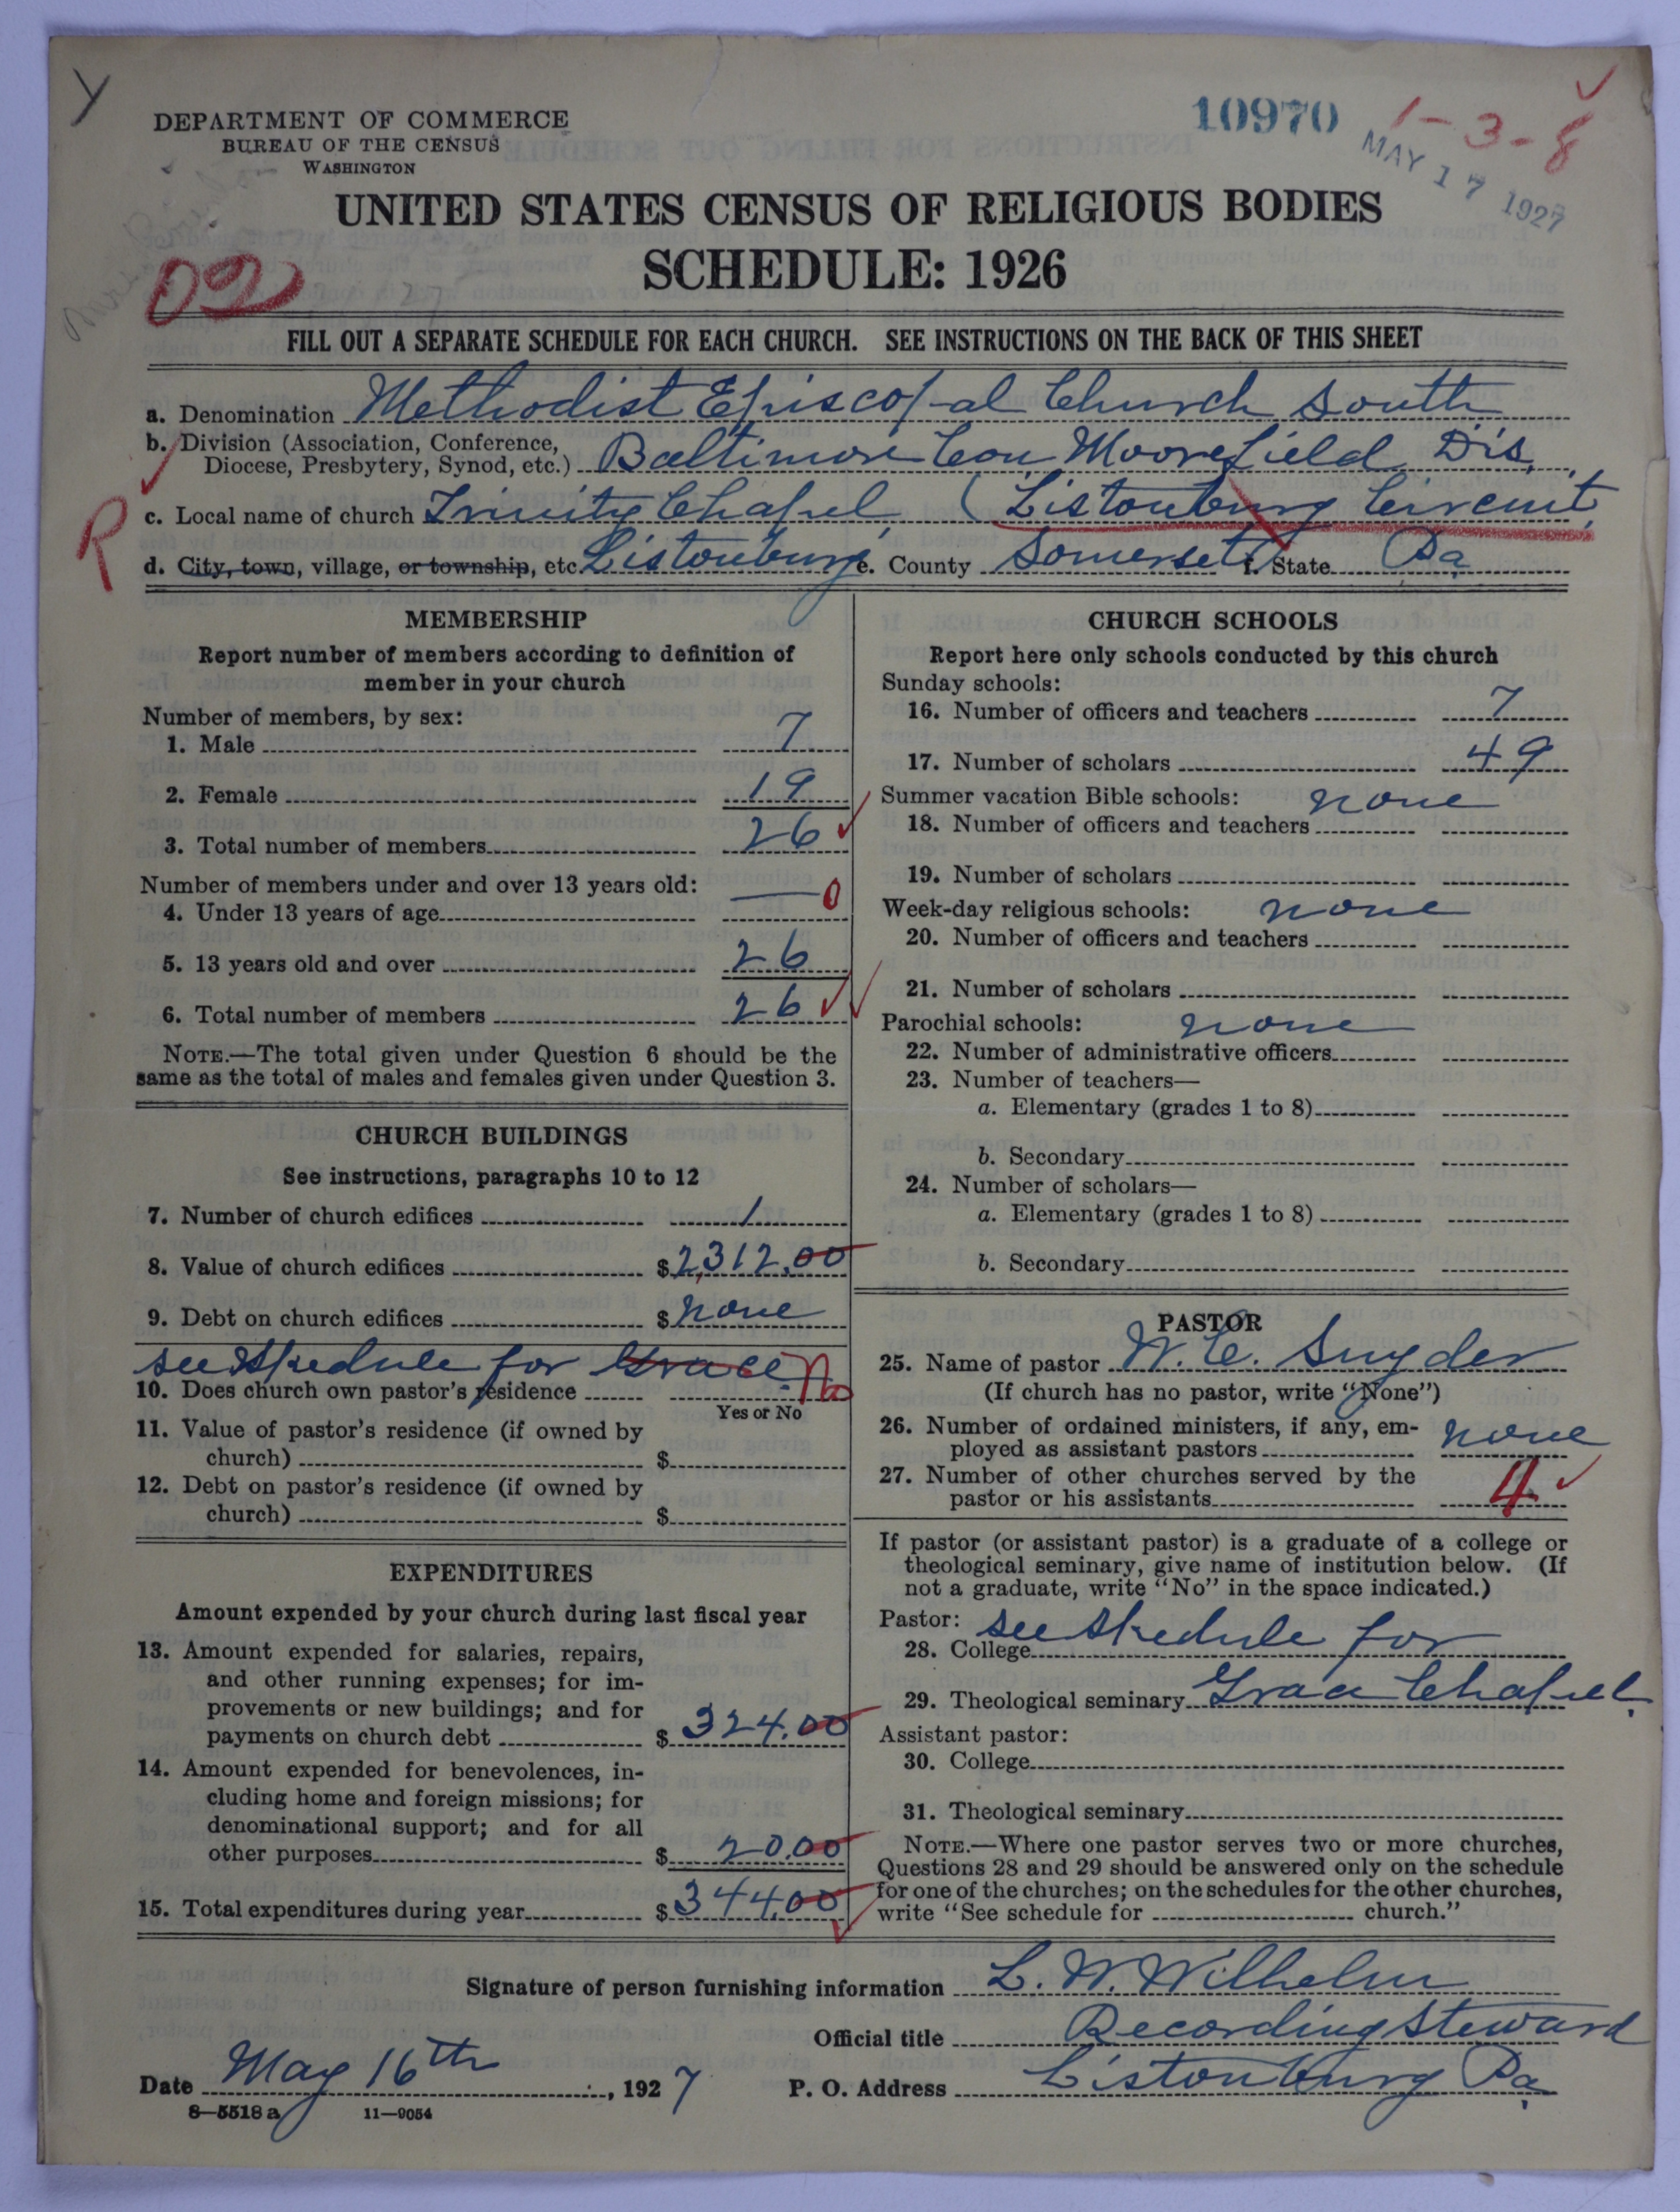 Y
DEPARTMENT OF COMMERCE
BUREAU OF THE CENSUS
WASHINGTON
10970
1-3-8
MAY 17 1927
UNITED STATES CENSUS OF RELIGIOUS BODIES
SCHEDULE: 1926
02
FILL OUT A SEPARATE SCHEDULE FOR EACH CHURCH. SEE INSTRUCTIONS ON THE BACK OF THIS SHEET
a. Denomination Methodist Episcopal Church South
b. Division (Association, Conference,
Diocese, Presbytery, Synod, etc.) Baltimore Con Moorefield Dis.
R
c. Local name of church Trinity Chapel (Listonburg Circuit
d. City, town, village, or township, etc. Listonburg e. County Somerset f. State Pa
MEMBERSHIP
Report number of members according to definition of
member in your church
Number of members, by sex:
1. Male 7
2. Female 19
3. Total number of members 26
Number of members under and over 13 years old:
4. Under 13 years of age — 0
5. 13 years old and over 26
6. Total number of members 26
NOTE.—The total given under Question 6 should be the
same as the total of males and females given under Question 3.
CHURCH BUILDINGS
See instructions, paragraphs 10 to 12
7. Number of church edifices 1
8. Value of church edifices $2,312.00
9. Debt on church edifices $ none
see skedule for Grace. No
10. Does church own pastor's residence
Yes or No
11. Value of pastor's residence (if owned by
church) $
12. Debt on pastor's residence (if owned by
church) $
EXPENDITURES
Amount expended by your church during last fiscal year
13. Amount expended for salaries, repairs,
and other running expenses; for im-
provements or new buildings; and for
payments on church debt $ 324.00
14. Amount expended for benevolences, in-
cluding home and foreign missions; for
denominational support; and for all
other purposes $ 20.00
15. Total expenditures during year $ 344.00
CHURCH SCHOOLS
Report here only schools conducted by this church
Sunday schools:
16. Number of officers and teachers 7
17. Number of scholars 49
Summer vacation Bible schools: none
18. Number of officers and teachers
19. Number of scholars
Week-day religious schools: none
20. Number of officers and teachers
21. Number of scholars
Parochial schools: none
22. Number of administrative officers
23. Number of teachers—
a. Elementary (grades 1 to 8)
b. Secondary
24. Number of scholars—
a. Elementary (grades 1 to 8)
b. Secondary
PASTOR
25. Name of pastor W. C. Snyder
(If church has no pastor, write "None")
26. Number of ordained ministers, if any, em-
ployed as assistant pastors none
27. Number of other churches served by the
pastor or his assistants 4
If pastor (or assistant pastor) is a graduate of a college or
theological seminary, give name of institution below. (If
not a graduate, write "No" in the space indicated.)
Pastor: see skedule for
28. College
29. Theological seminary Grace Chapel.
Assistant pastor:
30. College
31. Theological seminary
NOTE.—Where one pastor serves two or more churches,
Questions 28 and 29 should be answered only on the schedule
for one of the churches; on the schedules for the other churches,
write "See schedule for church."
Signature of person furnishing information L. W. Wilhelm
Official title Recording Steward
Date May 16th, 1927 P. O. Address Listonburg Pa.
8—5518 a 11—9054